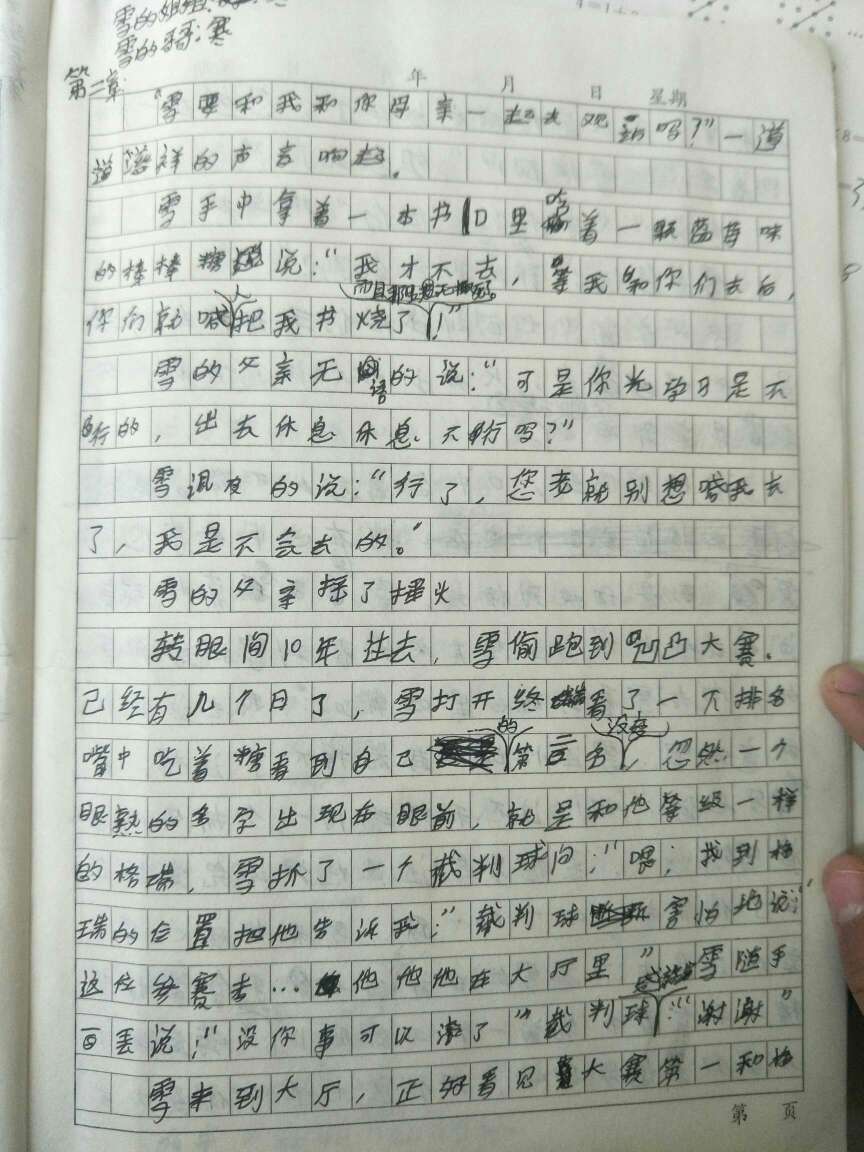 雪的姐姐:
雪的哥哥:寒
第二章
年 月 日 星期
"雪要和我和你母亲一起去观 吗?"一道
道慈祥的声音响起.
雪手中拿着一本书口里吃着一颗草莓味
的棒棒糖 说:"我才不去,等我和你们去后,
而且那里
你们就喊人把我书烧了!"
雪的父亲无语的说:"可是你光学习是不
行的,出去休息休息不行吗?"
雪 的说:"行了,您老就别想喊我去
了,我是不会去的。"
雪的父亲摇了摇头
转眼间10年过去,雪偷跑到凹凸大赛.
已经有几个日了,雪打开终端看了一下排名
嘴中吃着糖看到自己的第三名 ,忽然一个
眼熟的名字出现在眼前,就是和他等级一样
的格瑞,雪抓了一个裁判球问:"喂;找到格
瑞的位置把他告诉我;"裁判球 害怕地说:"
这位参赛者…他他他在大厅里"雪随手
一丢说:"没你事可以滚了"裁判球 :"谢谢"
雪来到大厅,正好看见大赛第一和格
第 页